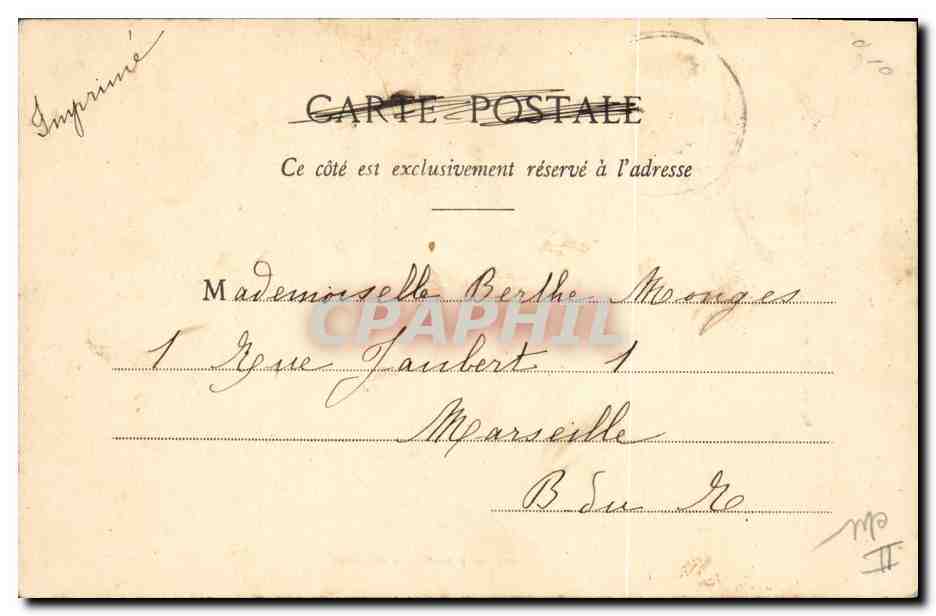 Imprimé
CARTE POSTALE
Ce côté est exclusivement réservé à l'adresse
Mademoiselle Berthe Monges
CPAPHIL
1 Rue Jaubert 1
Marseille
B du R
II